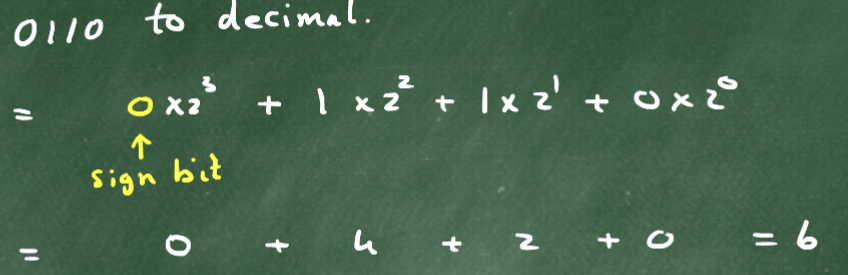 0110 to decimal.
= 0 x2³ + 1 x 2² + 1 x 2¹ + 0 x 2⁰
↑
sign bit
= 0 + 4 + 2 + 0 = 6